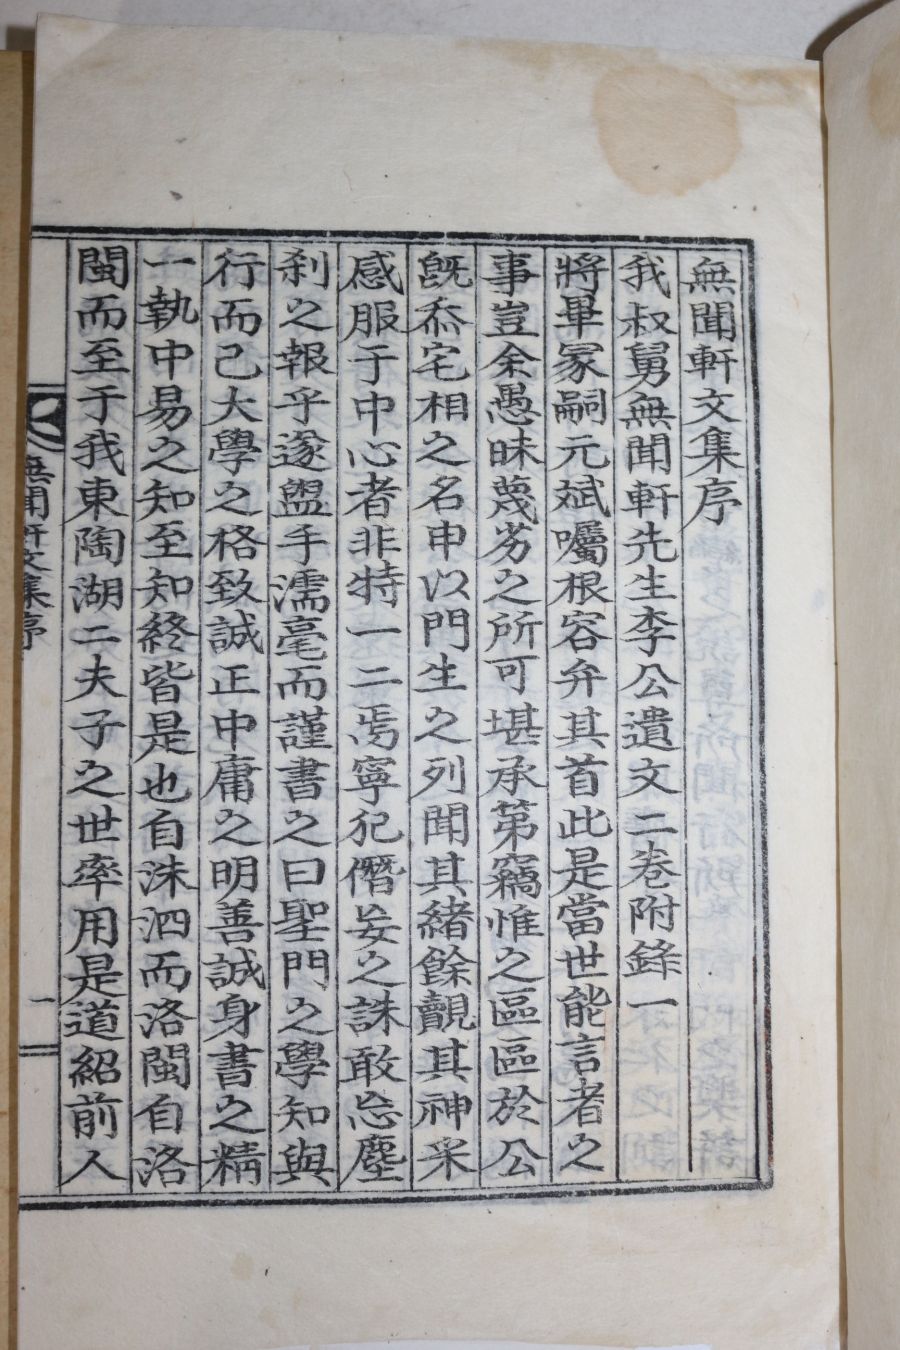 無聞軒文集序
我叔舅無聞軒先生李公遺文二卷附錄一
將畢冢嗣元斌囑根容弁其首此是當世能言者之
事豈余愚昧蔑劣之所可堪承第竊惟之區區於公
旣忝宅相之名申以門生之列聞其緖餘覿其神采
感服于中心者非特一二焉寧犯僭妄之誅敢忘塵
刹之報乎遂盥手濡毫而謹書之曰聖門之學知與
行而已大學之格致誠正中庸之明善誠身書之精
一執中易之知至知終皆是也自洙泗而洛閩自洛
閩而至于我東陶湖二夫子之世率用是道紹前人
無聞軒文集序
一